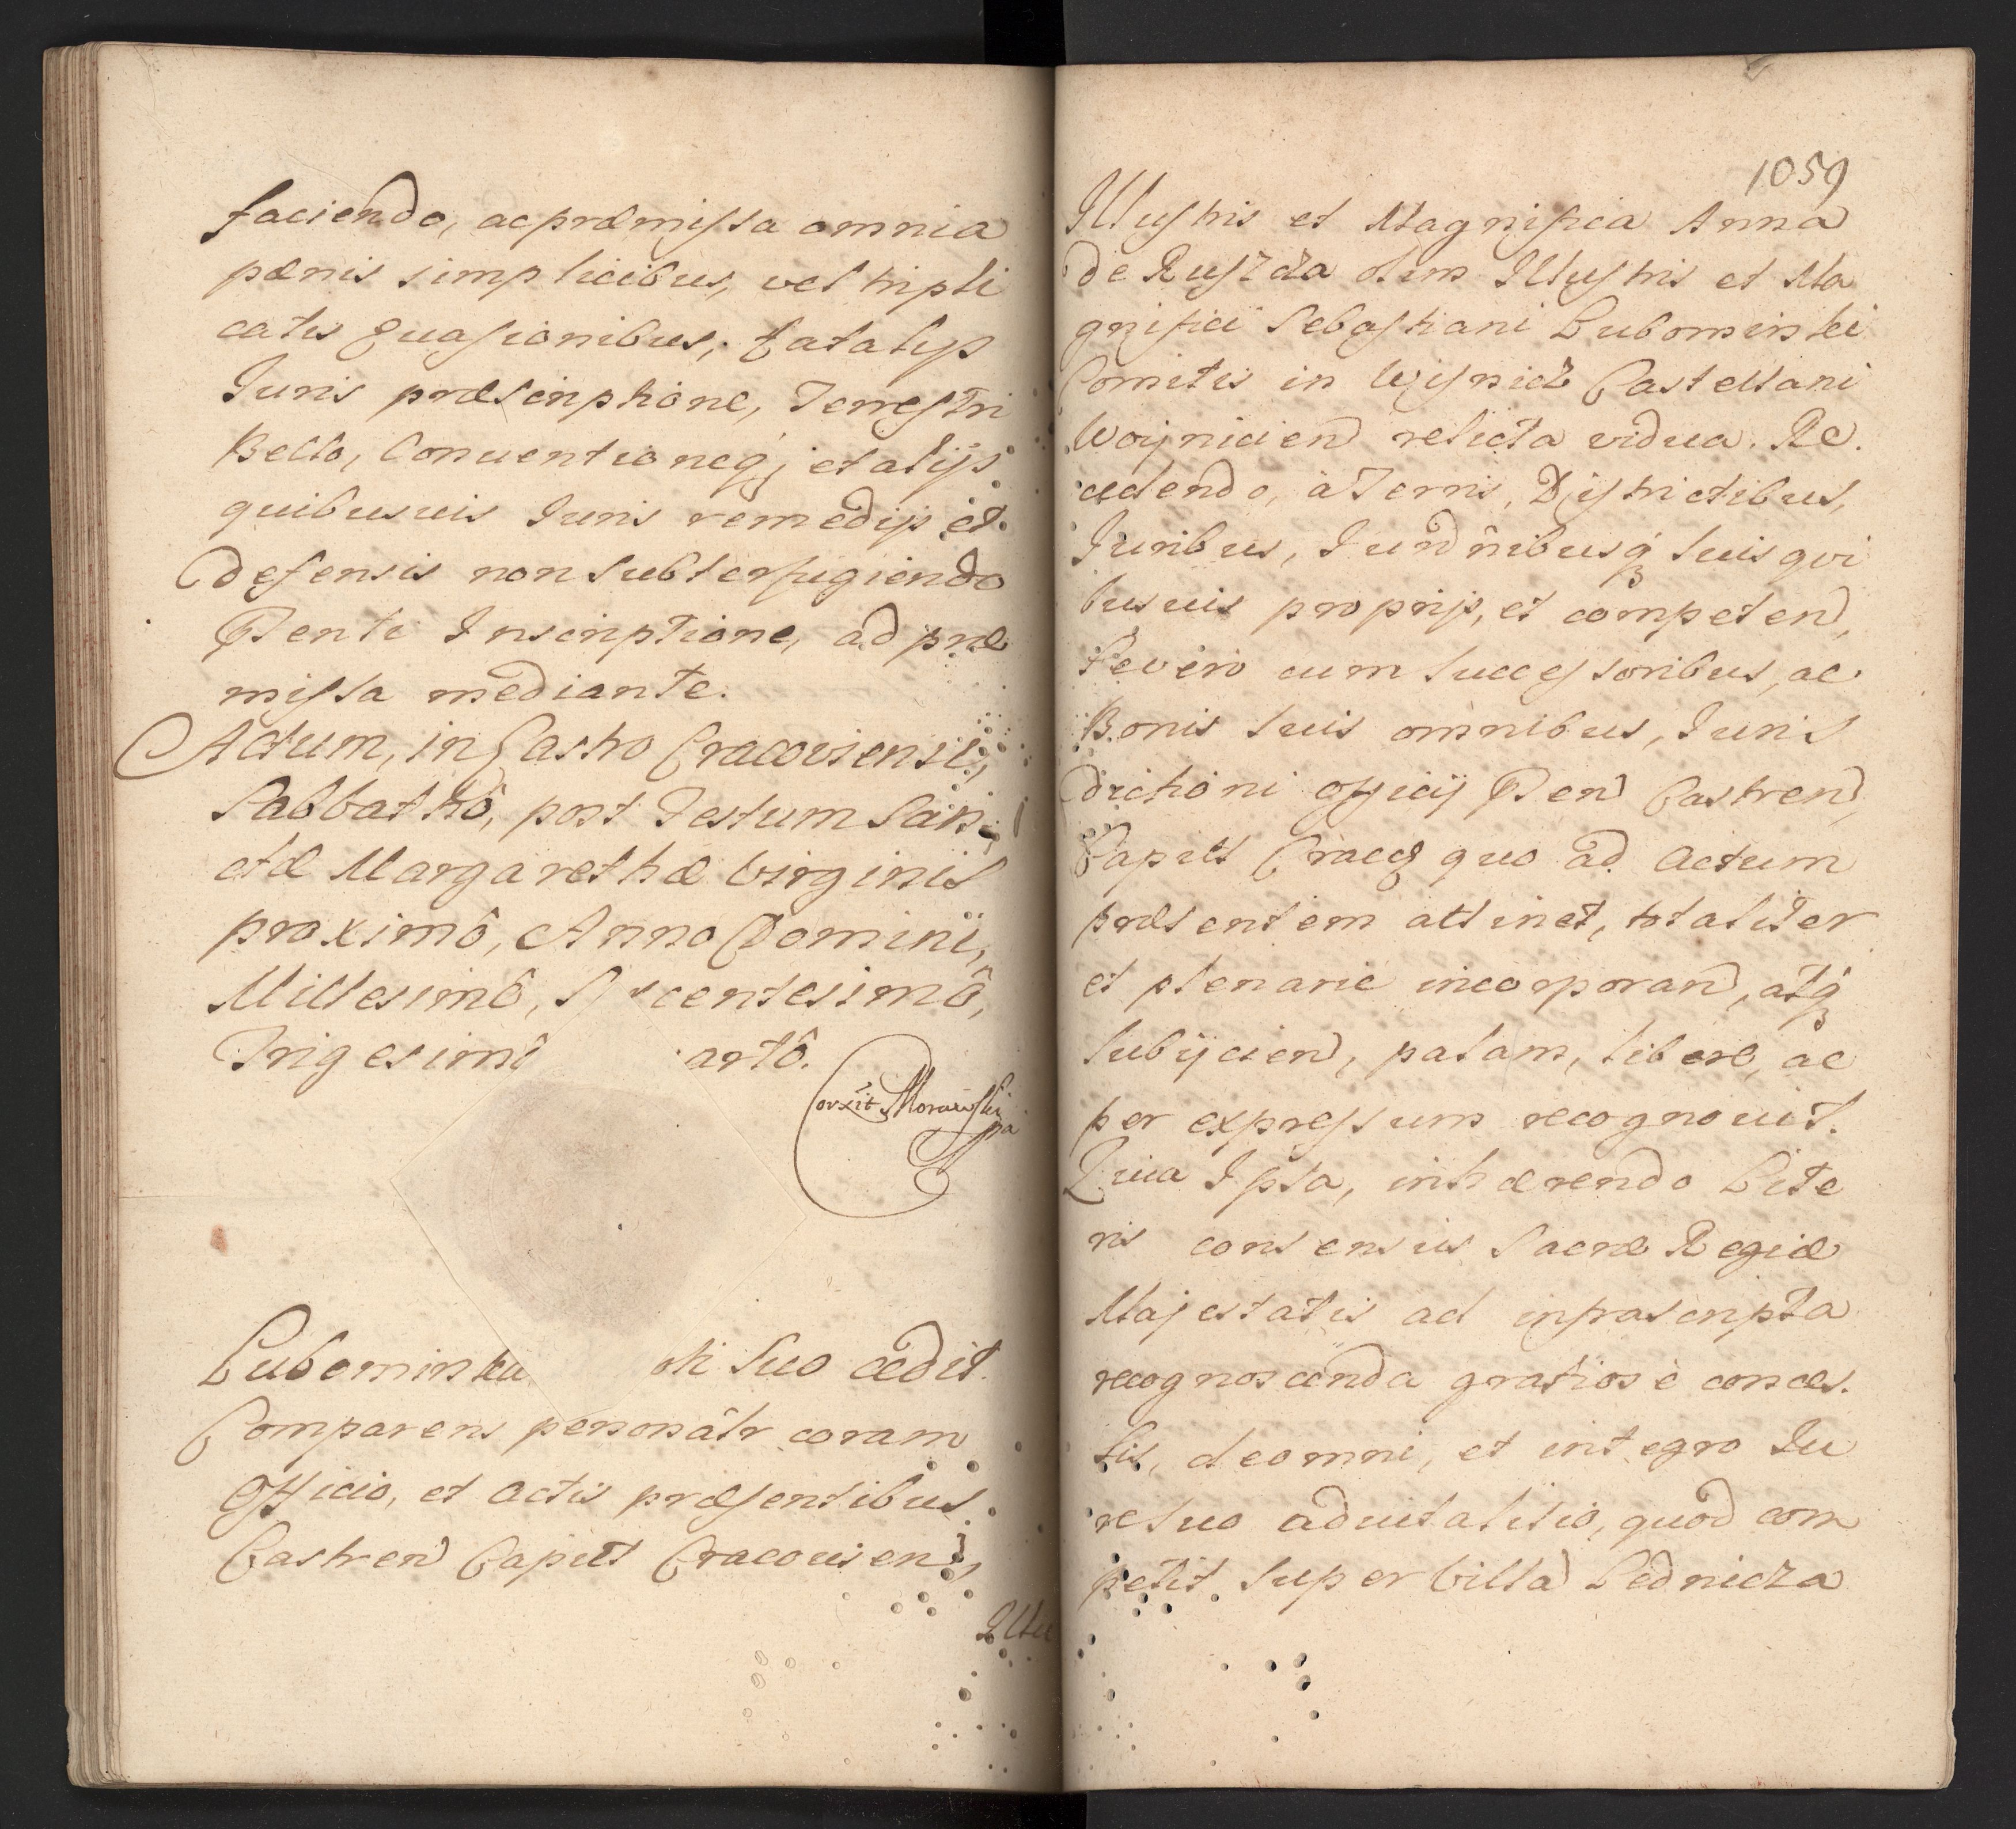 faciendo, ac præmissa omnia
pænis simplicibus, vel tripli
catis Euasionibus, fatalis
Juris præscriptione, Terrestri
Bello, Conuentioneq; et alijs
quibusuis Juris remedijs et
defensis non Subterfugiendo
Pnti Inscriptione, ad præ
missa mediante.
Actum, in Castro Cracoviensi,
Sabbathô, post Festum San-
ctæ Margarethæ Virginis
proximô, Anno Domini,
Millesimô, centesimô,
Trigesimô artô.
Corxit Morawski
pa
Lubomirska oti Suo cedit.
Comparens personalr coram
Officio, et actis præsentibus
Castren Capit Cracouien,
Illu
1059
Illustris et Magnifica Anna
de Ruszcza olim Illustris et Ma
gnifici Sebastiani Lubomirski
Comitis in Wisnicz Castellani
Woijnicien relicta vidua. Re.
cedendo, à Terris, Districtibus,
Juribus, Jurdnibusq Suis qvi
busuis proprijs, et competen,
Se vero cum Successoribus, ac
Bonis Suis omnibus, Juris
dictioni officij Pnen Castren,
Capit Crac quo ad actum
præsentem attinet, totaliter
et plenarie incorporan, atq
Subijcien, palam, libere, ac
per expressum recognouit.
Quia Ipsa, inhærendo Lite
ris consensus Sacræ Regiæ
Majestatis ad infrascripta
recognoscenda gratiosè conces.
sis, de omni, et integro Ju
re Suo aduitalitio, quod com
petit Super Villa Lednicza